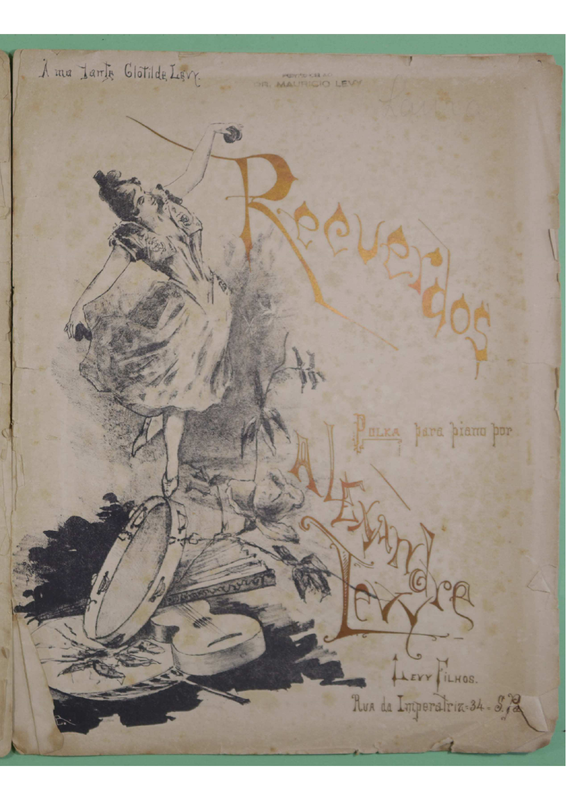 À ma tante Clotilde Levy.
DR. MAURICIO LEVY
Recuerdos
Polka para piano por
Alexandre
Levy
LLEVY FILHOS.
Rua da Imperatriz 34 - S.